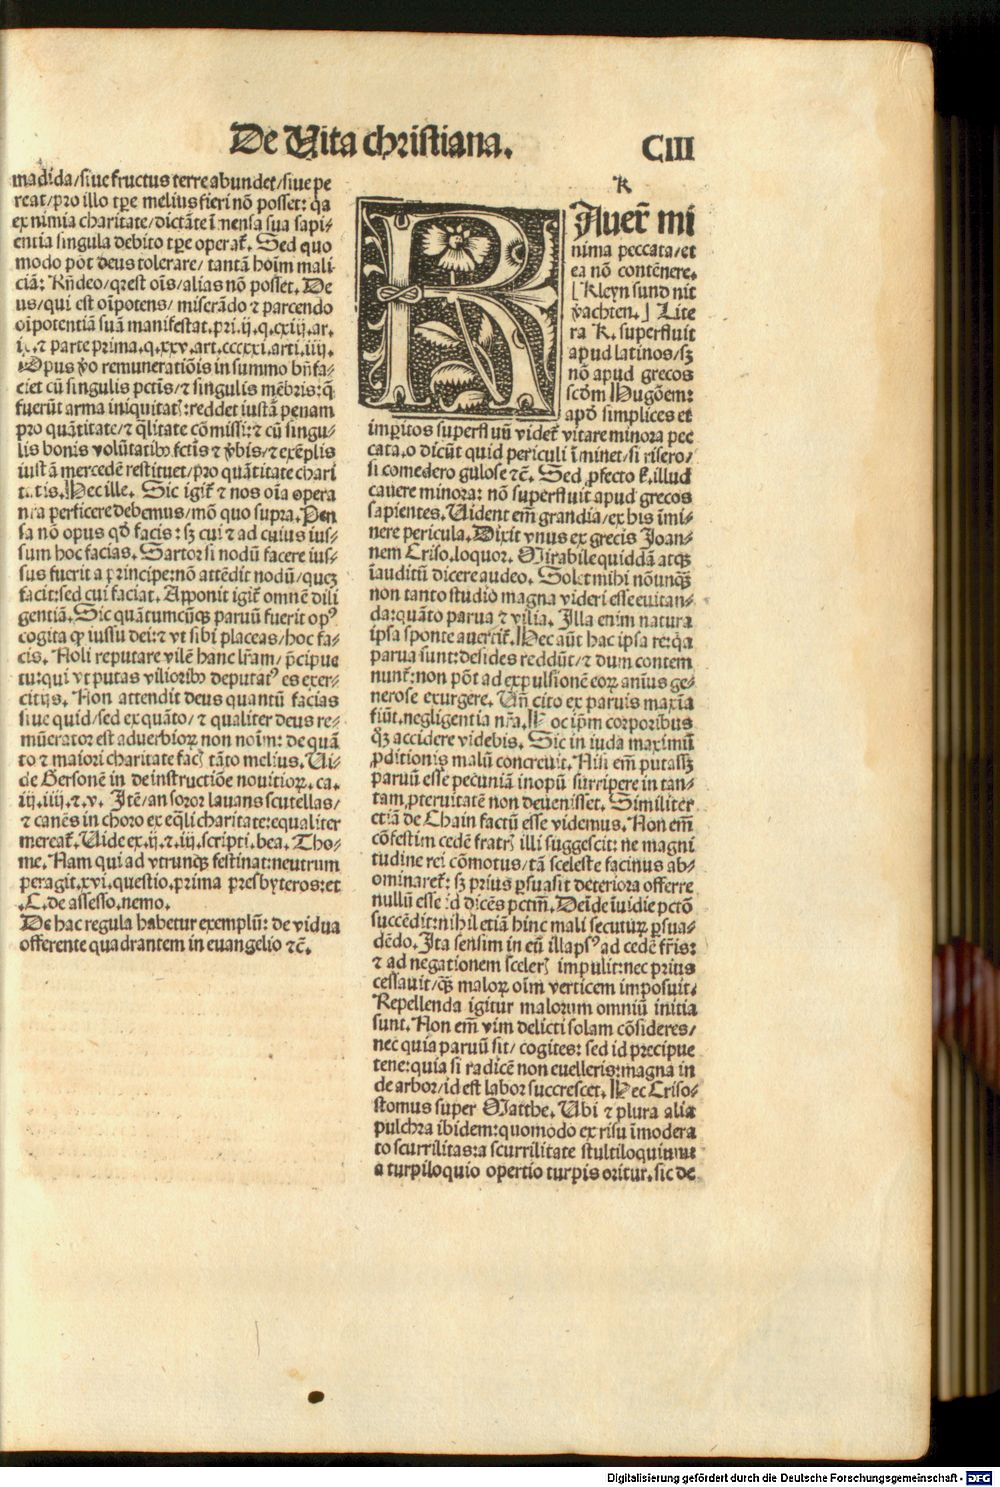 De Vita christiana.
CIII
madida/siue fructus terre abundet/siue pe
reat/pro illo tꝑe melius fieri nõ posset: qꝛ
ex nimia charitate/dictãte ĩmensa sua sapi⸗
entia singula debito tꝑe operat᷑. Sed quo
modo põt deus tolerare/ tantã hoĩm mali
ciã: Rñdeo/qꝛ est oĩs/alias nõ posset. De
us/qui est oĩpotens/ miserãdo ⁊ parcendo
oĩpotentiã suã manifestat.pri.ij.q.cxiij.ar.
i. ⁊ parte prima.q.xxv.art.cccxxi.arti.iiij.
Opus ꝟo remuneratiõis in summo bñ fa⸗
ciet cũ singulis pctĩs/⁊ singulis mẽbris: q̃
fuerũt arma iniquitatꝭ: reddet iustã penam
pro quãtitate/⁊ q̃litate cõmissi: ⁊ cũ singu⸗
lis bonis volũtatibꝰ fctĩs ⁊ ꝟbis/⁊ exẽplis
iustã mercedẽ restituet/pro quãtitate chari
tatis. Hec ille. Sic igit᷑ ⁊ nos oĩa opera
nr̃a perficere debemus/mõ quo supra. Pen
sa nõ opus qđ facis: sꝫ cui ⁊ ad cuius ius⸗
sum hoc facias. Sartor si nodũ facere ius⸗
sus fuerit a principe: nõ attẽdit nodũ/quẽ
facit: sed cui faciat. Apponit igit᷑ omnẽ dili
gentiã. Sic quãtumcũqꝫ paruũ fuerit opꝰ
cogita ꝙ iussu dei: ⁊ vt sibi placeas/hoc fa⸗
cis. Noli reputare vilẽ hanc lr̃am/ p̃cipue
tu: qui vt putas vilioribꝰ deputatꝰ es exer⸗
citijs. Non attendit deus quantũ facias
siue quid/sed ex quãto/ ⁊ qualiter deus re⸗
mũerator est aduerbioꝝ non noĩm: de quã
to ⁊ maiori charitate facꝭ tãto melius. Ui⸗
de Gersonẽ in de instructiõe nouitioꝝ. ca.
iij.iiij.⁊.v. Itẽ/an soror lauans scutellas/
⁊ canẽs in choro ex eq̃li charitate: equaliter
mereat᷑. Uide ex.ij.⁊.iij.scripti.bea.Tho⸗
me. Nam qui ad vtrunqꝫ festinat: neutrum
peragit.xvi.questio.prima presbyteros: et
.C.de assesso.nemo.
De hac regula habetur exemplũ: de vidua
offerente quadrantem in euangelio ⁊c̃.
K
K
Auer̃ mi
nima peccata/et
ea nõ contẽnere.
[Kleyn sund nit
ꝟachten.] Lite
ra K. superfluit
apud latinos/sꝫ
nõ apud grecos
scđm Hugõem:
apđ simplices et
imꝑitos superfluũ videt᷑ vitare minora pec
cata. o dicũt quid periculi ĩminet/si risero/
si comedero gulose ⁊c̃. Sed ꝓfecto k. illud
cauere minora: nõ superfluit apud grecos
sapientes. Uident em̃ grandia/ex his ĩmi⸗
nere pericula. Dixit vnus ex grecis Joan⸗
nem Criso.loquor. Mirabile quiddã atqꝫ
ĩauditũ dicere audeo. Solet mihi nõnunqꝫ̃
non tanto studio magna videri esse euitan⸗
da: quãto parua ⁊ vilia. Illa enim natura
ipsa sponte auertit᷑. Hec aũt hac ipsa re: qꝛ
parua sunt: desides reddũt/⁊ dum contem
nunt᷑: non põt ad expulsionẽ eoꝝ aniũs ge⸗
nerose exurgere. Uñ cito ex paruis maxia
fiũt. negligentia nr̃a. Hoc ip̃m corporibus
qꝫ̃ accidere videbis. Sic in iuda maximũ
ꝑditionis malũ concreuit. Nisi em̃ putassꝫ
paruũ esse pecuniã inopũ surripere in tan⸗
tam ꝓteruitatẽ non deuenisset. Similiter
etiã de Chain factũ esse videmus. Non em̃
cõfestim cedẽ fratrꝭ illi suggescit: ne magni
tudine rei cõmotus/tã sceleste facinus ab⸗
ominaret᷑: sꝫ prius ꝑsuasit deteriora offerre
nullũ esse id dicẽs pctm̃. Deĩde ĩuidie pctõ
succẽdit: nihil etiã hinc mali secuturũ ꝑsua⸗
dẽdo. Ita sensim in eũ illapsꝰ ad cedẽ fr̃is:
⁊ ad negationem scelerꝭ impulit: nec prius
cessauit/qꝫ̃ maloꝝ oĩm verticem imposuit.
Repellenda igitur malorum omniũ initia
sunt. Non em̃ vim delicti solam cõsideres/
nec quia paruũ sit/ cogites: sed id precipue
tene: quia si radicẽ non euelleris: magna in
de arbor/id est labor succrescet. Hec Criso⸗
stomus super Matthe. Ubi ⁊ plura alia
pulchra ibidem: quomodo ex risu ĩmodera
to scurrilitas: a scurrilitate stultiloquium
a turpiloquio opertio turpis oritur. sic de
Digitalisierung gefördert durch die Deutsche Forschungsgemeinschaft - DFG